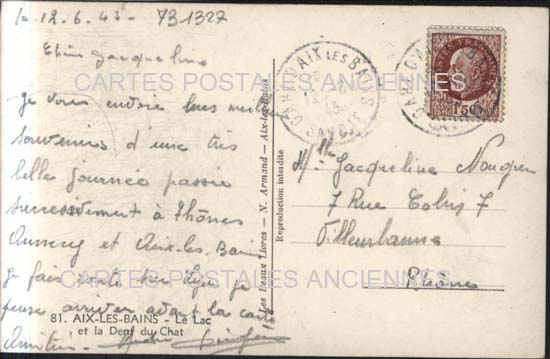 le 12.6.43 - 731327
Chère Jacqueline
Je vous envoie mes meilleurs
souvenirs d'une très
belle journée passée
successivement à Thônes
Annecy et Aix-les-Bains
Je
pense arriver avant la carte
Amitiés
81. AIX-LES-BAINS - Le Lac
et la Dent du Chat
Les Beaux Livres — N. Armand — Aix-les-Bains
Reproduction interdite
GARE D'AIX LES BAINS
12
43
SAVOIE
POSTES FRANÇAISES
1F50
Mlle Jacqueline
7 Rue 7
Villeurbanne
Rhône
CARTES POSTALES ANCIENNES
CARTES POSTALES ANCIENNES